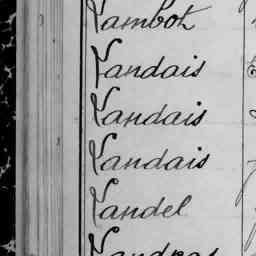 Lambot
Landais
Landais
Landais
Landel